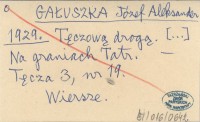 GAŁUSZKA Józef Aleksander
1929. Tęczową drogą. [...]
Na graniach Tatr. —
Tęcza 3, nr 19.
Wiersze.